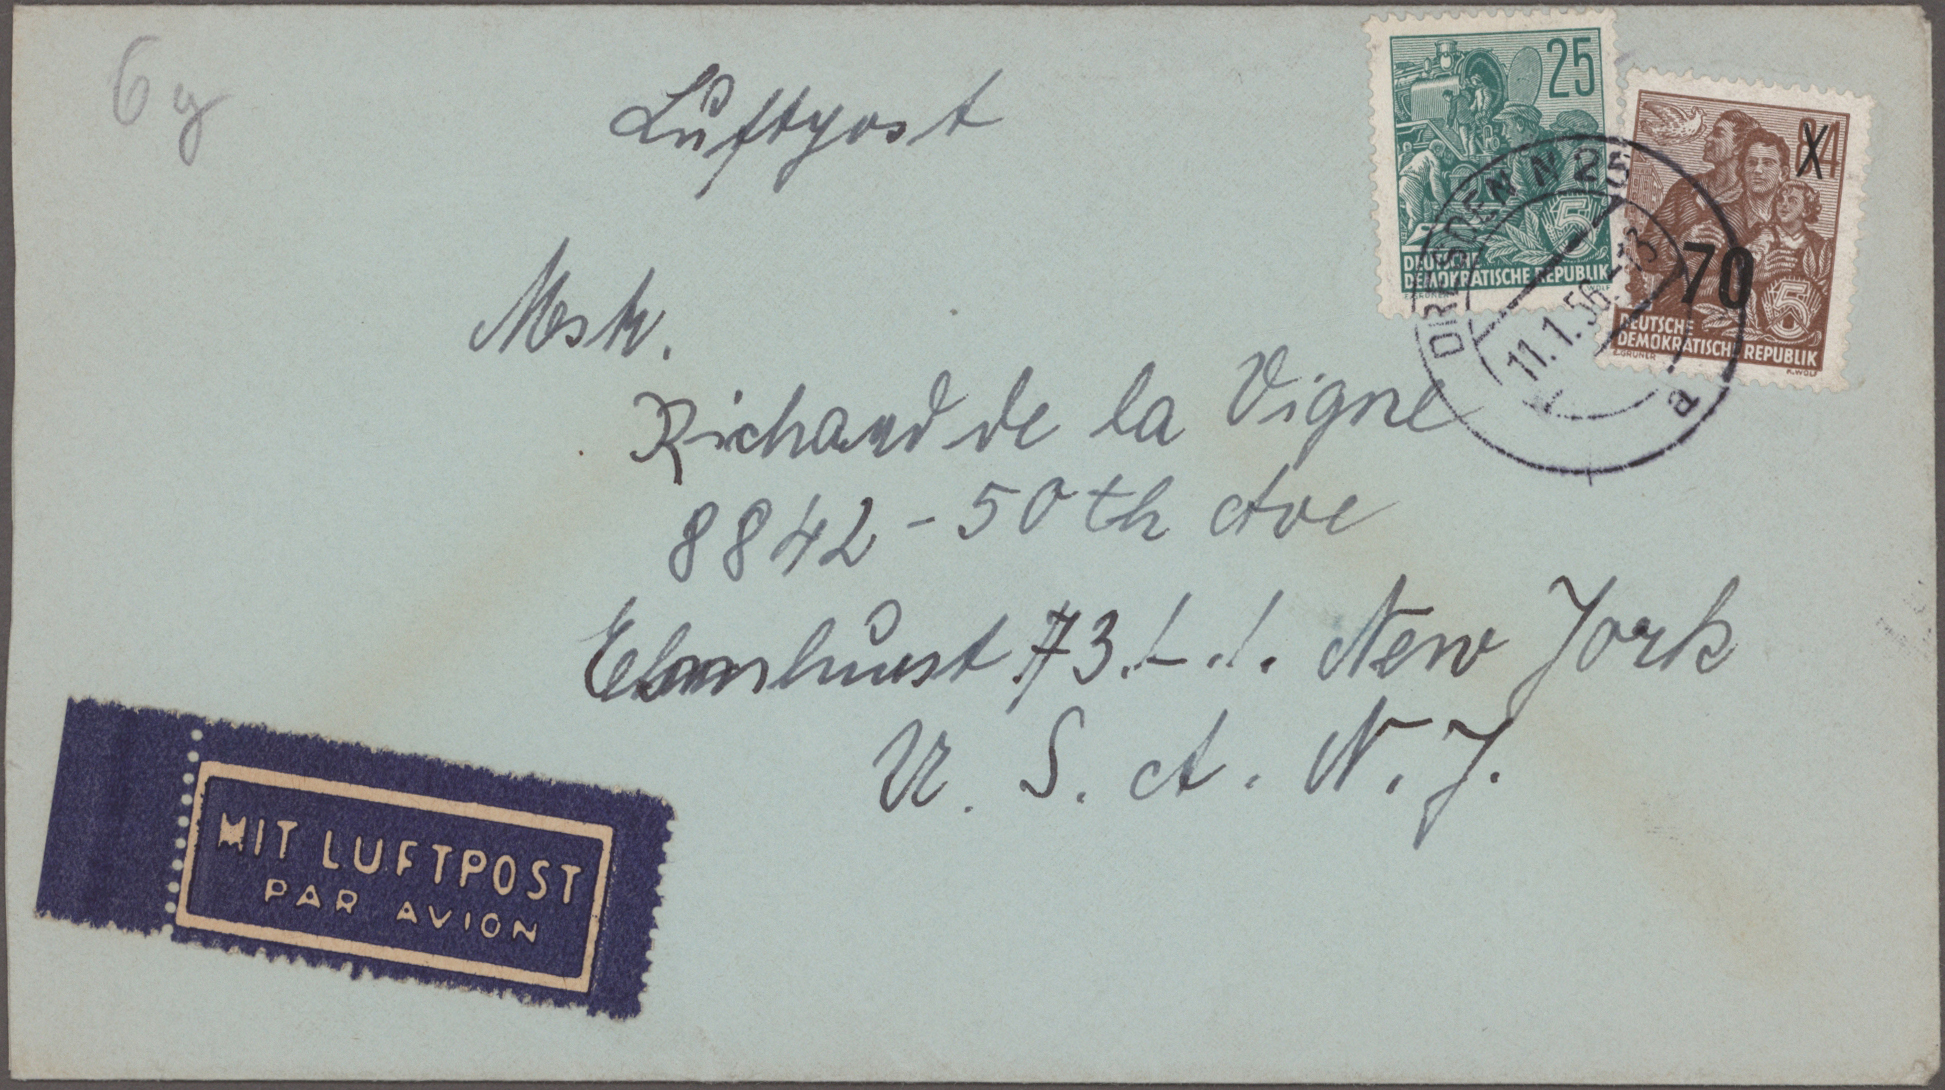 6 g
Luftpost
25
DEUTSCHE
DEMOKRATISCHE REPUBLIK
E.GRUNER
K.WOLF
84
70
DEUTSCHE
DEMOKRATISCHE REPUBLIK
E.GRUNER
K.WOLF
DRESDEN N 25
11.1.56
a
Richard de la Vigne
8842 - 50th Ave
Elmhurst 73. L. I. New York
U. S. A. N. J.
MIT LUFTPOST
PAR AVION